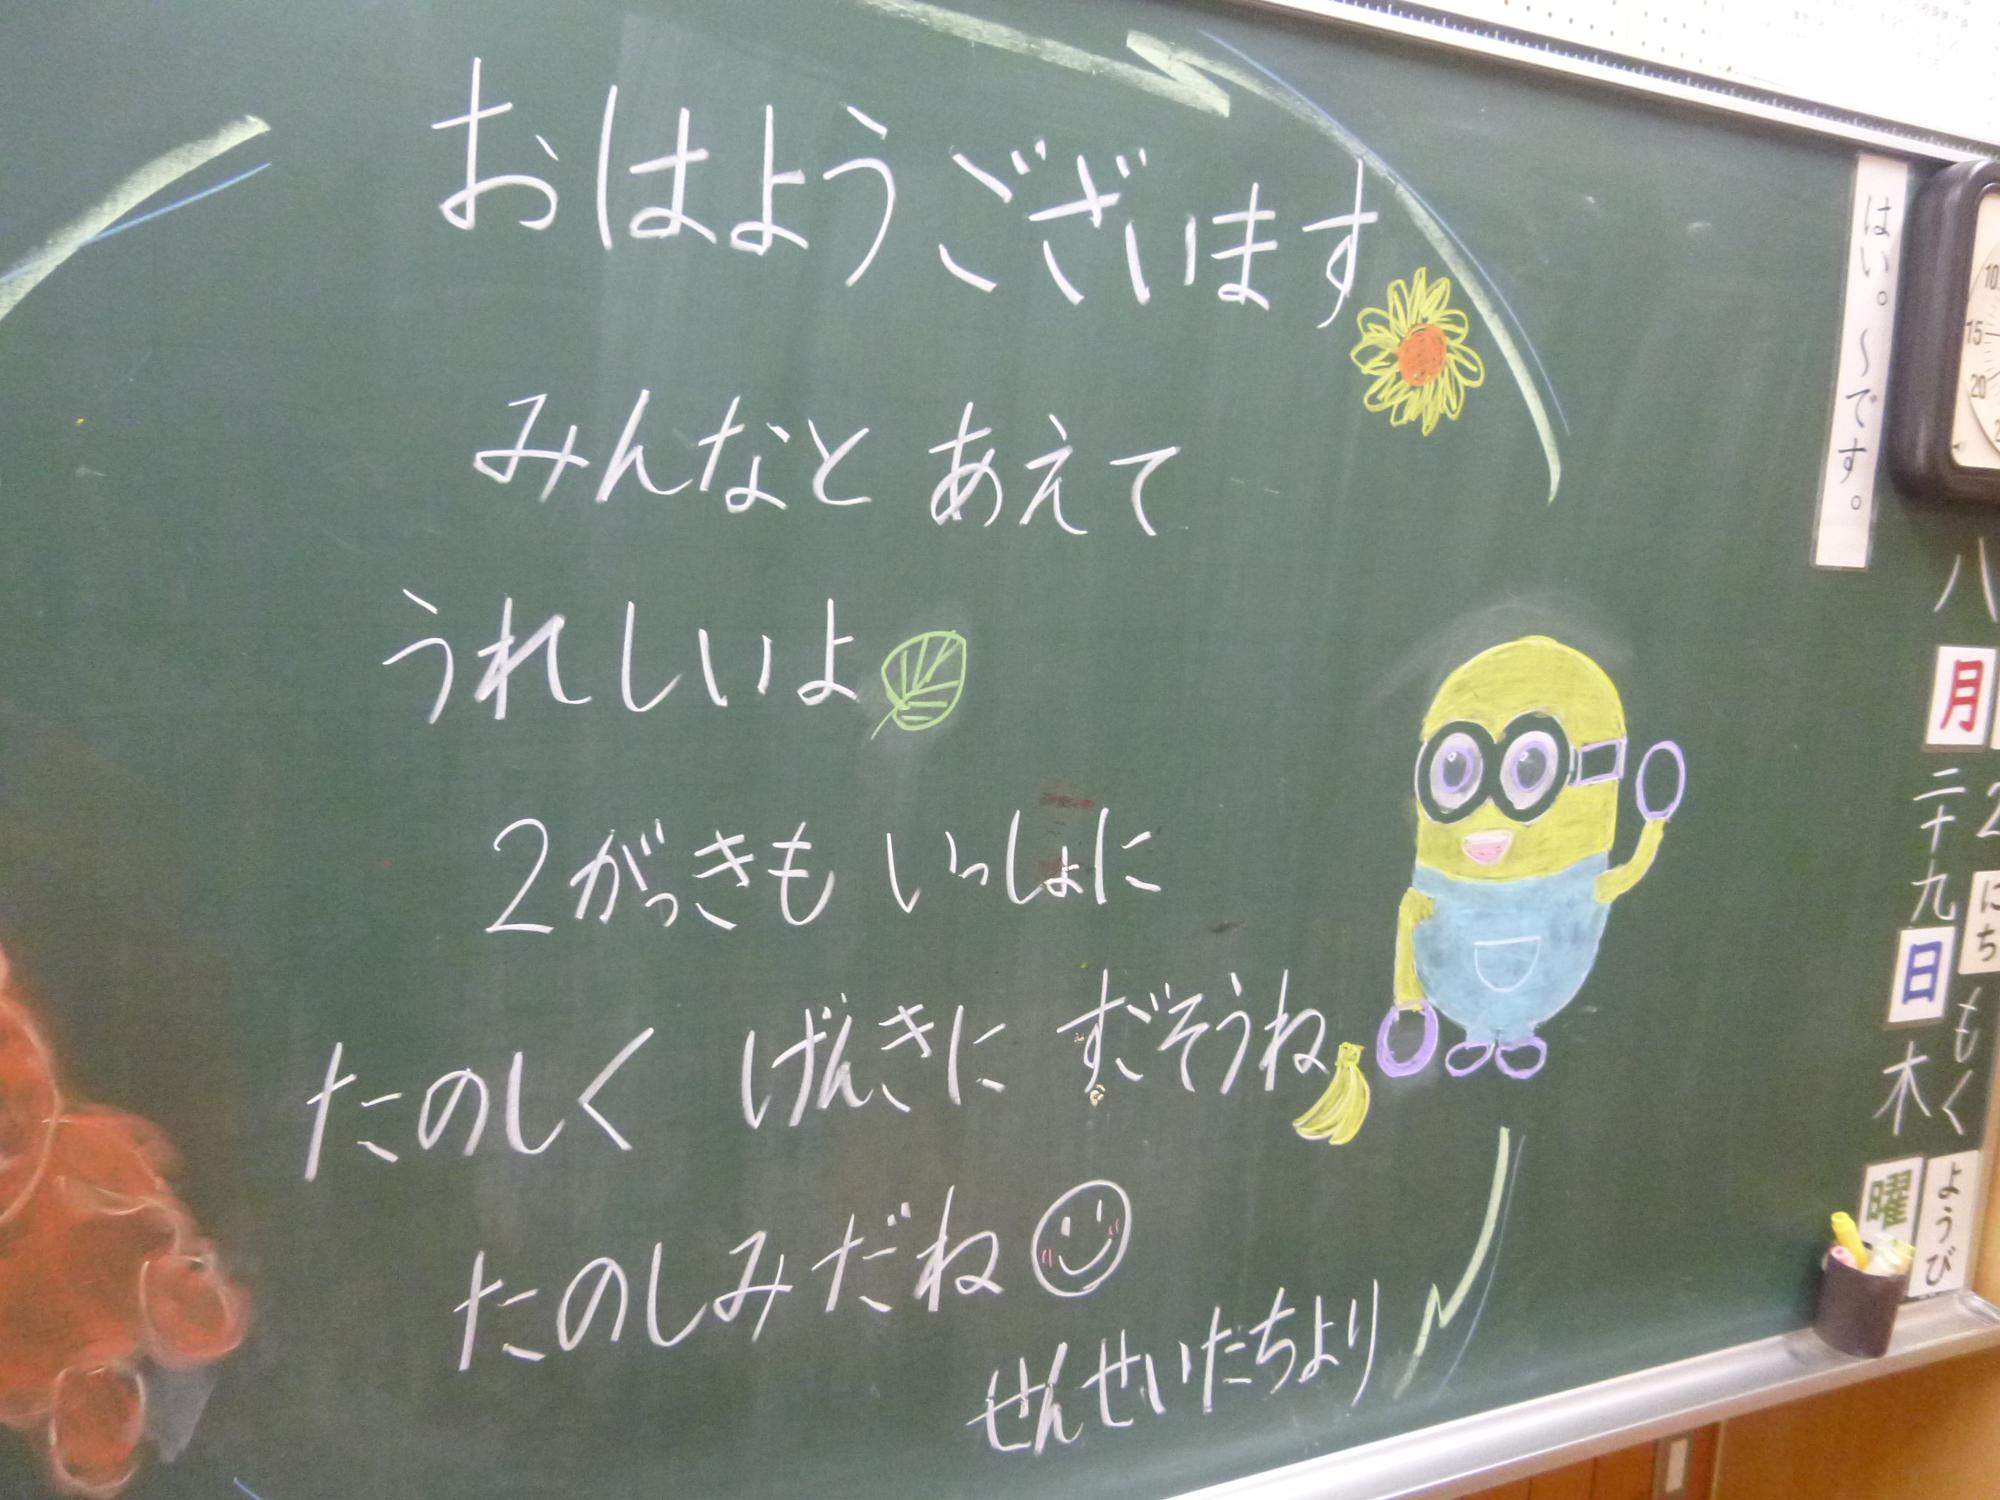 おはようございます
みんなと あえて
うれしいよ
2がっきも いっしょに
たのしく げんきに すごそうね
たのしみだね
せんせいたちより
はい。～です。
八月二十九日木曜
にちもくようび
10
15
20